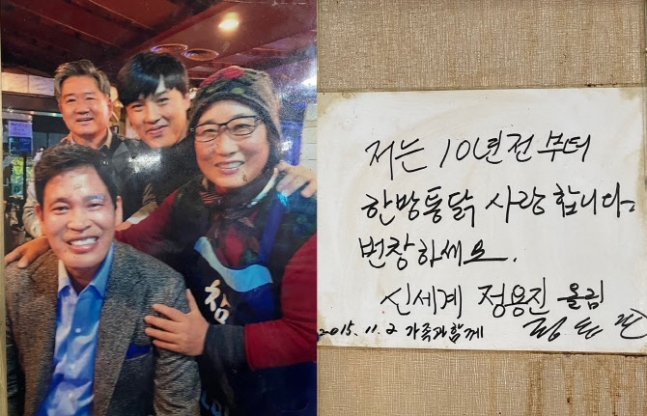 참
저는 10년전부터
한방통닭 사랑합니다.
번창하세요.
신세계 정용진 올림
2015.11.2 가족과함께